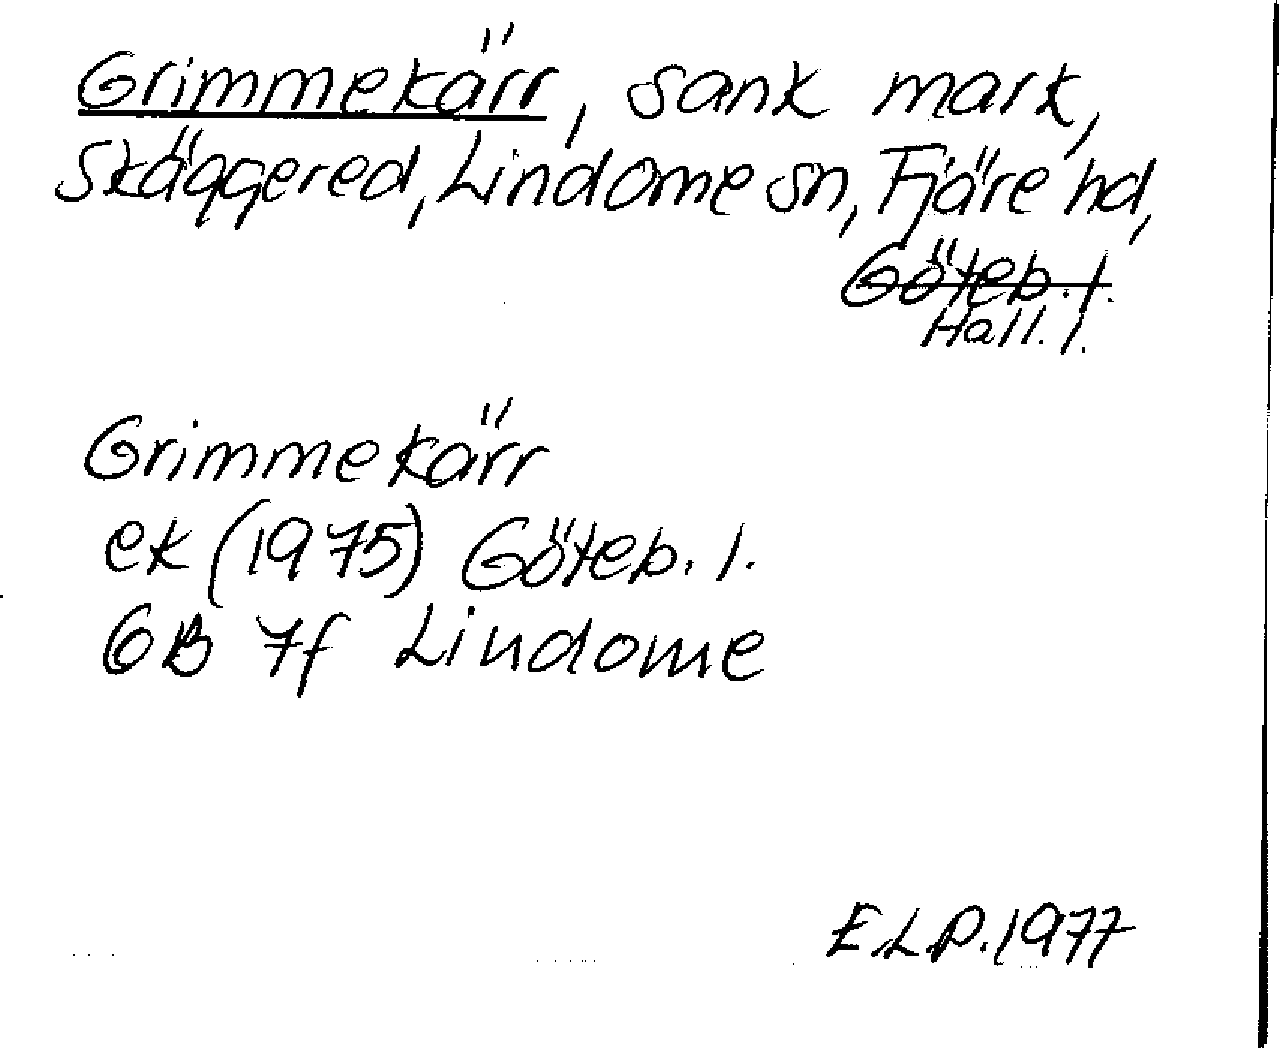 Grimmekärr, sank mark,
Skäggered, Lindome sn, Fjäre hd,
Göteb. l.
Hall. l.
Grimmekärr
ek (1975) Göteb. l.
6B 7f Lindome
E.L.P. 1977